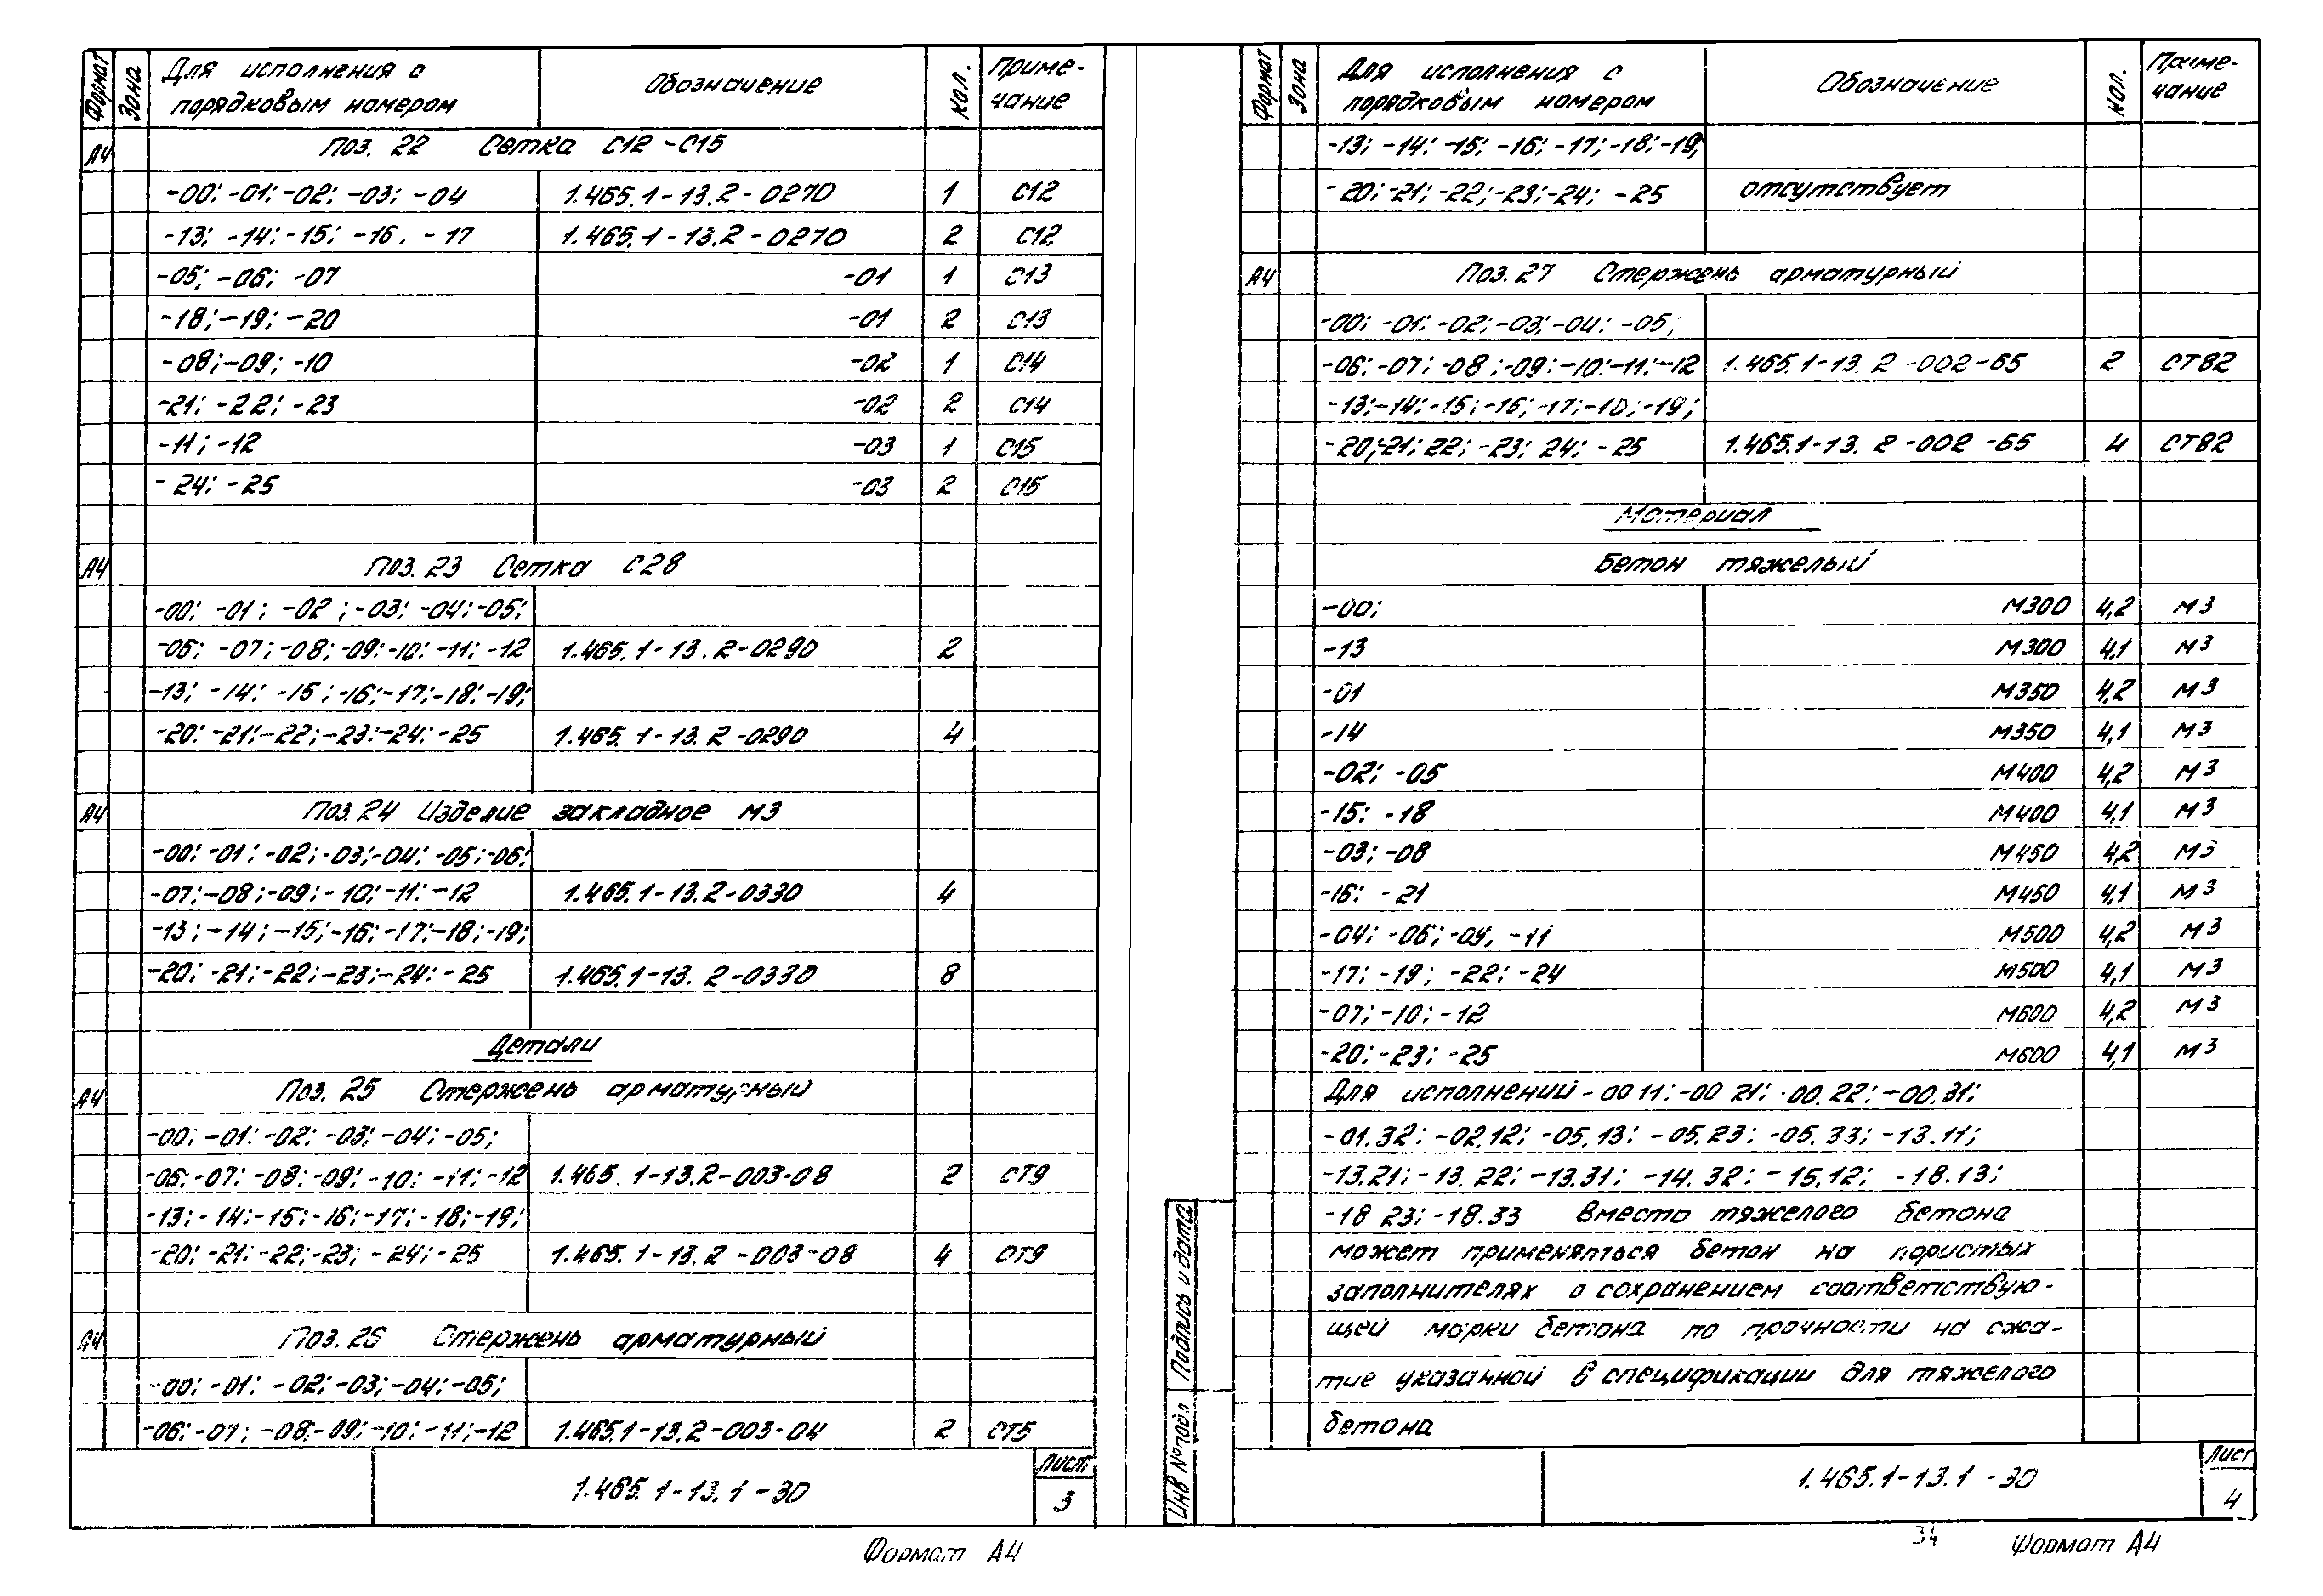 Формат Зона Для исполнения с порядковым номером Обозначение Кол. Примечание
А4 Поз. 22 Сетка С12 - С15
-00; -01; -02; -03; -04 1.465.1-13.2-0270 1 С12
-13; -14; -15; -16. -17 1.465.1-13.2-0270 2 С12
-05; -06; -07 -01 1 С13
-18; -19; -20 -01 2 С13
-08; -09; -10 -02 1 С14
-21; -22; -23 -02 2 С14
-11; -12 -03 1 С15
-24; -25 -03 2 С15
А4 Поз. 23 Сетка С28
-00; -01; -02; -03; -04; -05;
-06; -07; -08; -09; -10; -11; -12 1.465.1-13.2-0290 2
-13; -14; -15; -16; -17; -18; -19;
-20; -21; -22; -23; -24; -25 1.465.1-13.2-0290 4
А4 Поз. 24 Изделие закладное М3
-00; -01; -02; -03; -04; -05; -06;
-07; -08; -09; -10; -11; -12 1.465.1-13.2-0330 4
-13; -14; -15; -16; -17; -18; -19;
-20; -21; -22; -23; -24; -25 1.465.1-13.2-0330 8
Детали
А4 Поз. 25 Стержень арматурный
-00; -01; -02; -03; -04; -05;
-06; -07; -08; -09; -10; -11; -12 1.465.1-13.2-003-08 2 СТ9
-13; -14; -15; -16; -17; -18; -19;
-20; -21; -22; -23; -24; -25 1.465.1-13.2-003-08 4 СТ9
А4 Поз. 26 Стержень арматурный
-00; -01; -02; -03; -04; -05;
-06; -07; -08; -09; -10; -11; -12 1.465.1-13.2-003-04 2 СТ5
1.465.1-13.1-30 Лист 3
Формат А4
Формат Зона Для исполнения с порядковым номером Обозначение Кол. Примечание
-13; -14; -15; -16; -17; -18; -19;
-20; -21; -22; -23; -24; -25 отсутствует
А4 Поз. 27 Стержень арматурный
-00; -01; -02; -03; -04; -05;
-06; -07; -08; -09; -10; -11; -12 1.465.1-13.2-002-65 2 СТ82
-13; -14; -15; -16; -17; -18; -19;
-20; -21; 22; -23; 24; -25 1.465.1-13.2-002-65 4 СТ82
Материал
Бетон тяжелый
-00; М300 4,2 м3
-13 М300 4,1 м3
-01 М350 4,2 м3
-14 М350 4,1 м3
-02; -05 М400 4,2 м3
-15; -18 М400 4,1 м3
-03; -08 М450 4,2 м3
-16; -21 М450 4,1 м3
-04; -06; -09, -11 М500 4,2 м3
-17; -19; -22; -24 М500 4,1 м3
-07; -10; -12 М600 4,2 м3
-20; -23; -25 М600 4,1 м3
Для исполнений -00 11; -00 21; -00.22; -00.31;
-01.32; -02.12; -05.13; -05.23; -05.33; -13.11;
-13.21; -13.22; -13.31; -14.32; -15.12; -18.13;
-18 23; -18.33 вместо тяжелого бетона
может применяться бетон на пористых
заполнителях с сохранением соответствую-
щей марки бетона по прочности на сжа-
тие указанной в спецификации для тяжелого
бетона
Инв № подл Подпись и дата
1.465.1-13.1-30 Лист 4
34 Формат А4